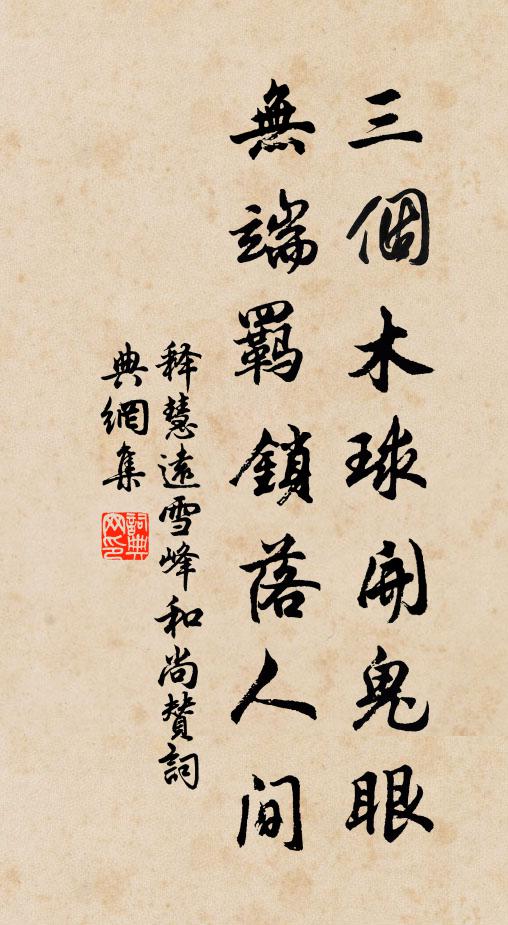 三個木球開鬼眼
無端羈鎖落人間
釋慧遠雪峰和尚贊詞
典網集
詞典網印